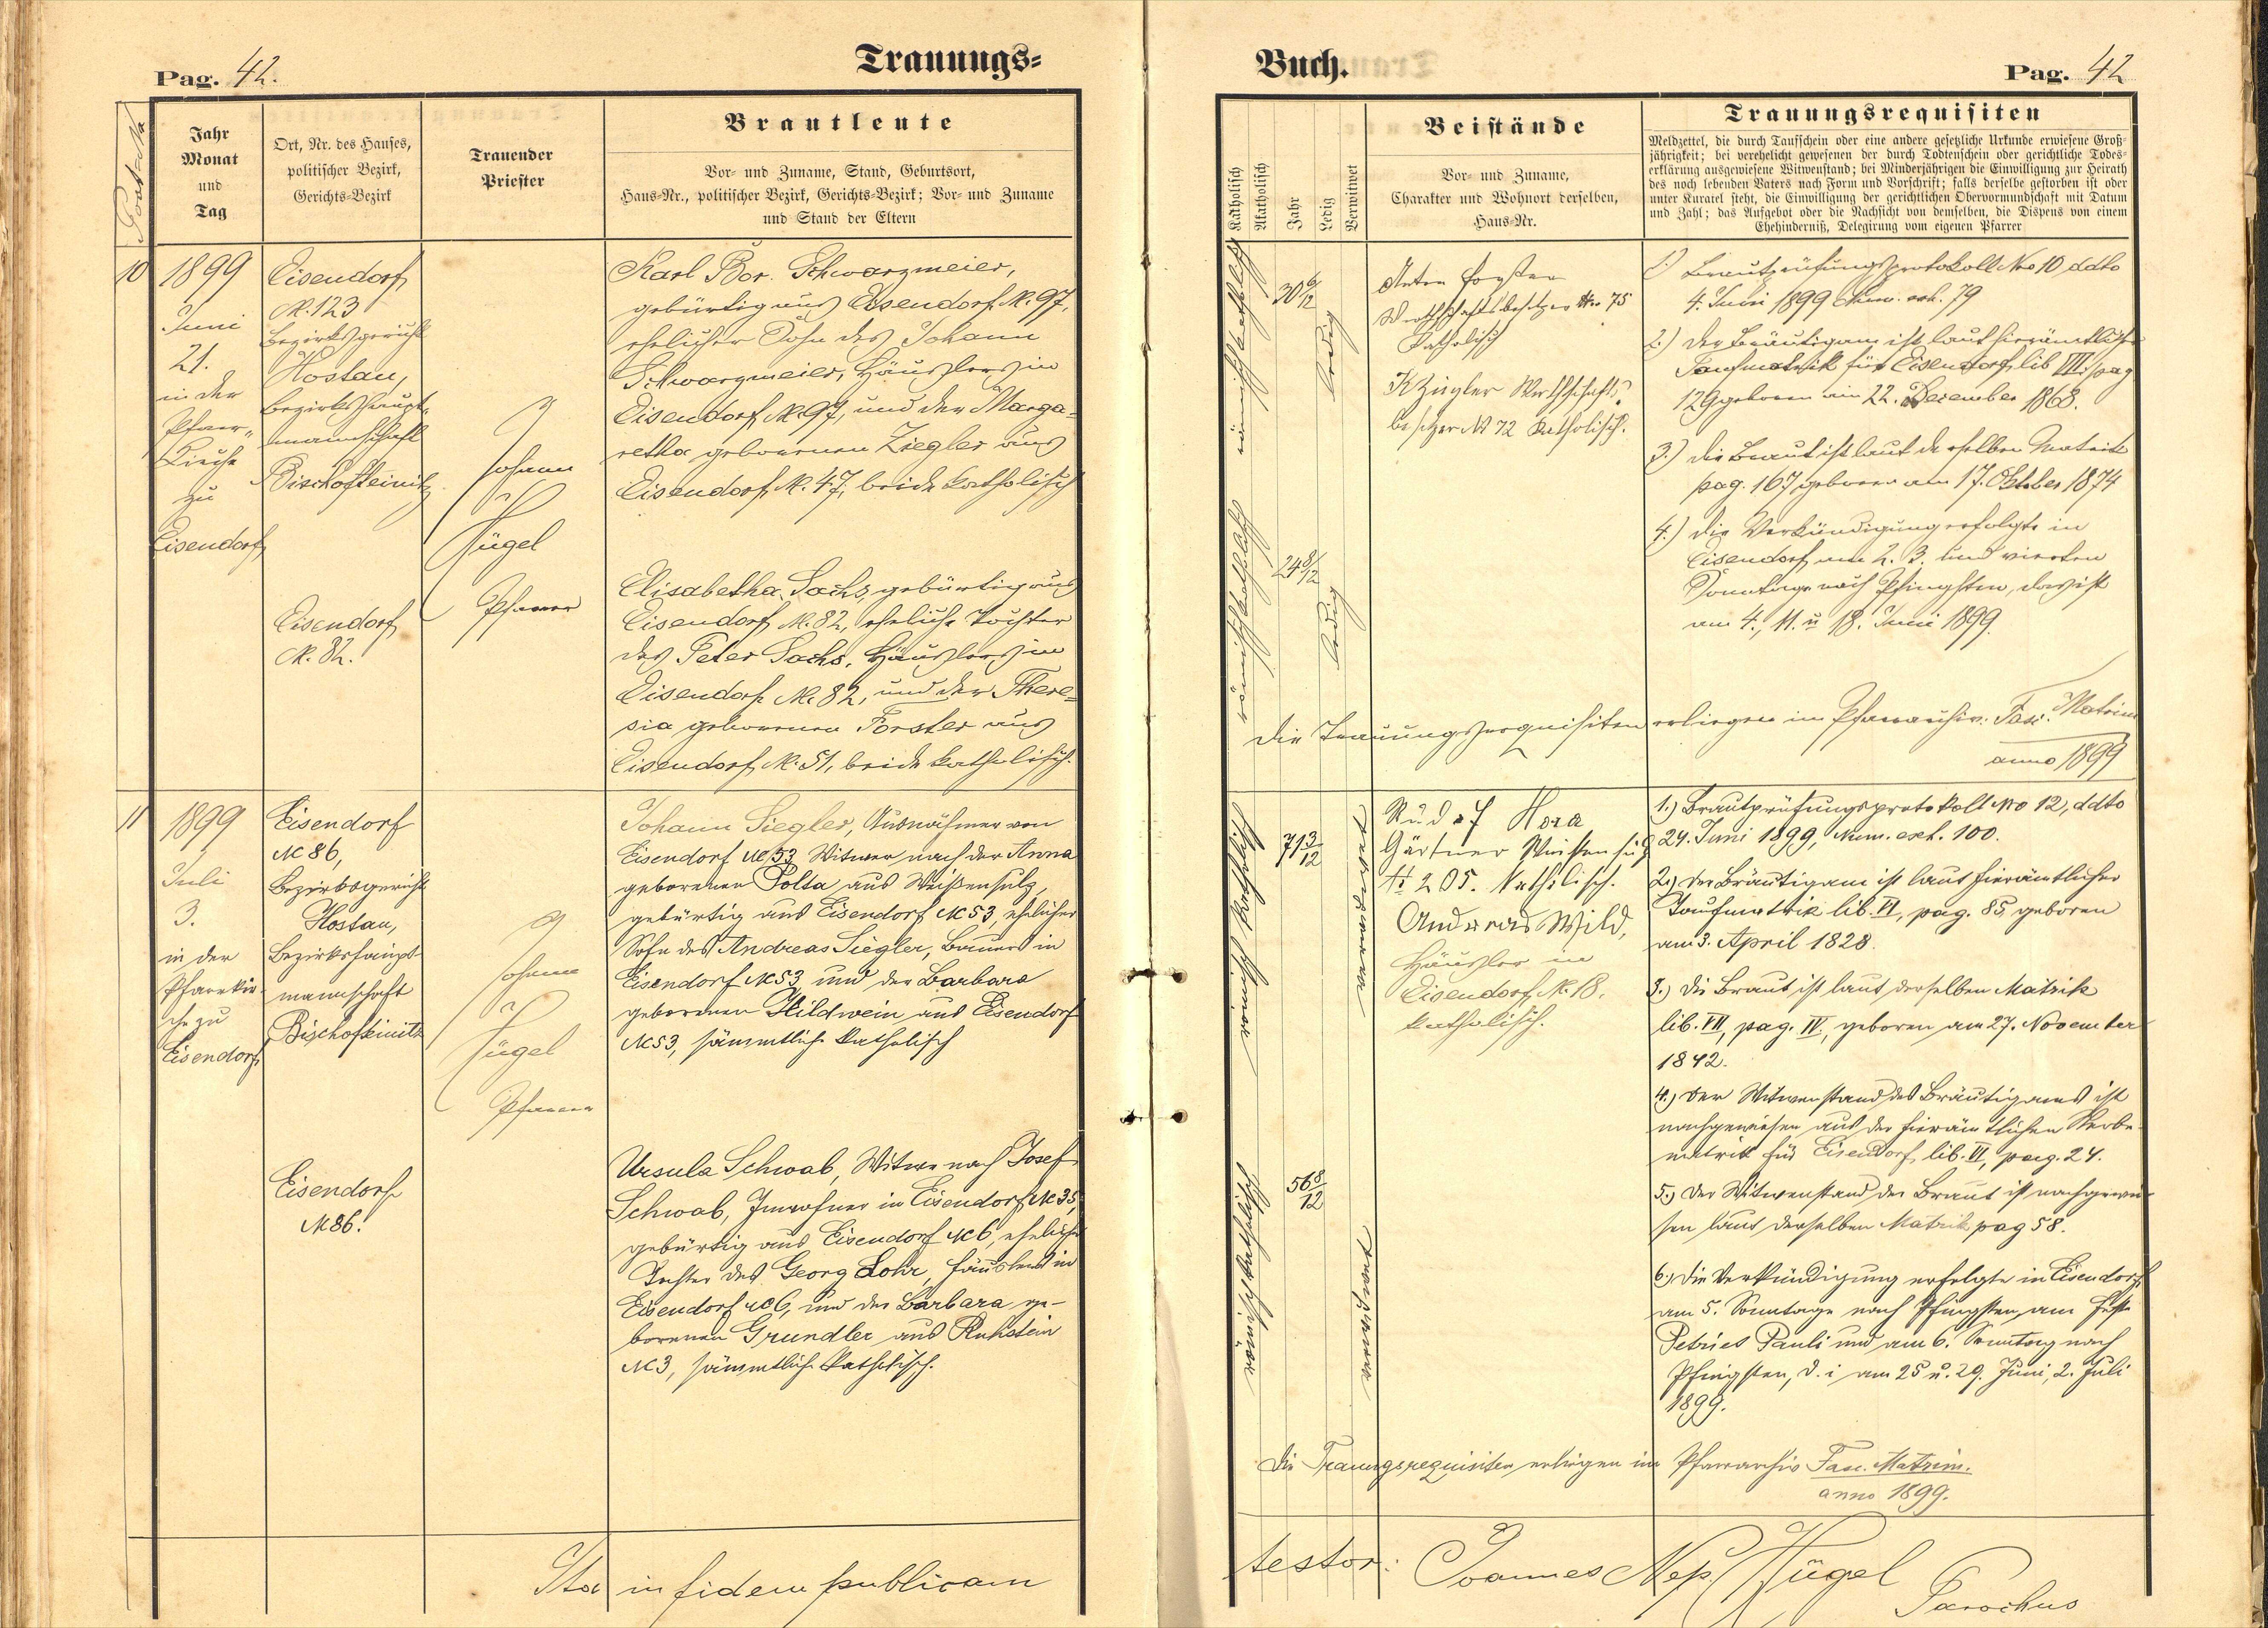 Trauungs=
Pag. 42.
Post-No
Jahr
Monat
und
Tag
Ort, Nr. des Hauses,
politischer Bezirk,
Gerichts-Bezirk
Trauender
Priester
Brautleute
Vor- und Zuname, Stand, Geburtsort,
Haus-Nr., politischer Bezirk, Gerichts-Bezirk; Vor- und Zuname
und Stand der Eltern
10
1899
Juni
21.
in der
Pfarr-
Kirche
zu
Eisendorf
Eisendorf
N. 123
Bezirksgericht
Hostau,
Bezirkshaupt-
mannschaft
Bischofteinitz
Eisendorf
N. 82.
Johann
Hügel
Pfarrer
Karl Bor. Schwarzmeier,
gebürtig aus Eisendorf N. 97,
ehelicher Sohn des Johann
Schwarzmeier, Häuslers in
Eisendorf N. 97, und der Marga=
retha geborenen Ziegler aus
Eisendorf N. 47, beide katholisch
Elisabetha Sachs, gebürtig aus
Eisendorf N. 82, eheliche Tochter
des Peter Sachs, Häuslers in
Eisendorf N. 82, und der There=
sia geborenen Forster aus
Eisendorf N. 51, beide katholisch.
11
1899
Juli
3.
in der
Pfarrkir-
che zu
Eisendorf
Eisendorf
N 86,
Bezirksgericht
Hostau,
Bezirkshaupt-
mannschaft
Bischofteinitz
Eisendorf
N 86.
Johann
Hügel
Pfarrer
Johann Siegler, Ausnahmer von
Eisendorf N 53 Witwer nach der Anna
geborenen Polta aus Weißensulz,
gebürtig aus Eisendorf N 53, ehelicher
Sohn des Andreas Siegler, Bauers in
Eisendorf N 53 und der Barbara
geborenen Hildwein aus Eisendorf
N 53, sämmtlich katholisch
Ursula Schwab, Witwe nach Josef
Schwab, Inwohner in Eisendorf N 35,
gebürtig aus Eisendorf N 6, eheliche
Tochter des Georg Lohr, Häuslers in
Eisendorf N 6, und der Barbara ge-
borenen Grundler aus Ruhstein
N 3, sämmtlich katholisch.
Ita in fidem publicam
Buch.
Pag. 42
Katholisch
Akatholisch
Jahr
Ledig
Verwitwet
Beistände
Vor- und Zuname,
Charakter und Wohnort derselben,
Haus-Nr.
Trauungsrequisiten
Meldzettel, die durch Taufschein oder eine andere gesetzliche Urkunde erwiesene Groß-
jährigkeit; bei verehelicht gewesenen der durch Todtenschein oder gerichtliche Todes-
erklärung ausgewiesene Witwenstand; bei Minderjährigen die Einwilligung zur Heirath
des noch lebenden Vaters nach Form und Vorschrift; falls derselbe gestorben ist oder
unter Kuratel steht, die Einwilligung der gerichtlichen Obervormundschaft mit Datum
und Zahl; das Aufgebot oder die Nachsicht von demselben, die Dispens von einem
Ehehinderniß, Delegirung vom eigenen Pfarrer
römisch katholisch
30 6/12
ledig
römisch katholisch
24 8/12
ledig
Anton Forster
Wirthschaftsbesitzer No 75
Katholisch
K Ziegler Wirthschafts-
besitzer N 72 katholisch.
1.) Brautprüfungsprotokoll Nro 10 ddto
4. Juni 1899 Num. exh. 79
2.) Der Bräutigam ist laut hierämtlicher
Taufmatrik für Eisendorf, lib VIII. pag
129 geboren am 22. Dezember 1868.
3.) die Braut ist laut derselben Matrik
pag. 167 geboren am 17. Oktober 1874
4.) die Verkündigung erfolgte in
Eisendorf am 2. 3. und vierten
Sonntage nach Pfingsten, das ist
am 4., 11. u 18. Juni 1899.
Die Trauungsrequisiten erliegen im Pfarrarchiv: Fasc. Matrim
anno 1899
römisch katholisch
71 3/12
verwitwet
römisch katholisch
56 8/12
verwitwet
Rudolf Hora
Gärtner Weissensulz
N 205. Katholisch.
Andreas Wild,
Häusler in
Eisendorf N. 18.
katholisch.
1.) Brautprüfungsprotokoll Nro 12, ddto
24. Juni 1899, Num. exh. 100.
2.) Der Bräutigam ist laut hierämtlicher
Taufmatrik lib. VI, pag. 85, geboren
am 3. April 1828.
3.) Die Braut ist laut derselben Matrik
lib. VII, pag. IV, geboren am 27. November
1842.
4.) Der Witwenstand des Bräutigams ist
nachgewiesen aus der hierämtlichen Sterbe-
matrik für Eisendorf, lib. VI, pag. 24.
5.) Der Witwenstand der Braut ist nachgewie-
sen laut derselben Matrik pag 58.
6.) Die Verkündigung erfolgte in Eisendorf
am 5. Sonntage nach Pfingsten, am Feste
Petri et Pauli und am 6. Sonntag nach
Pfingsten, d. i am 25 u. 29. Juni, 2. Juli
1899.
Die Trauungsrequisiten erliegen im Pfarrarchiv Fasc. Matrim.
anno 1899.
testor: Joannes Nep. Hügel
Parochus